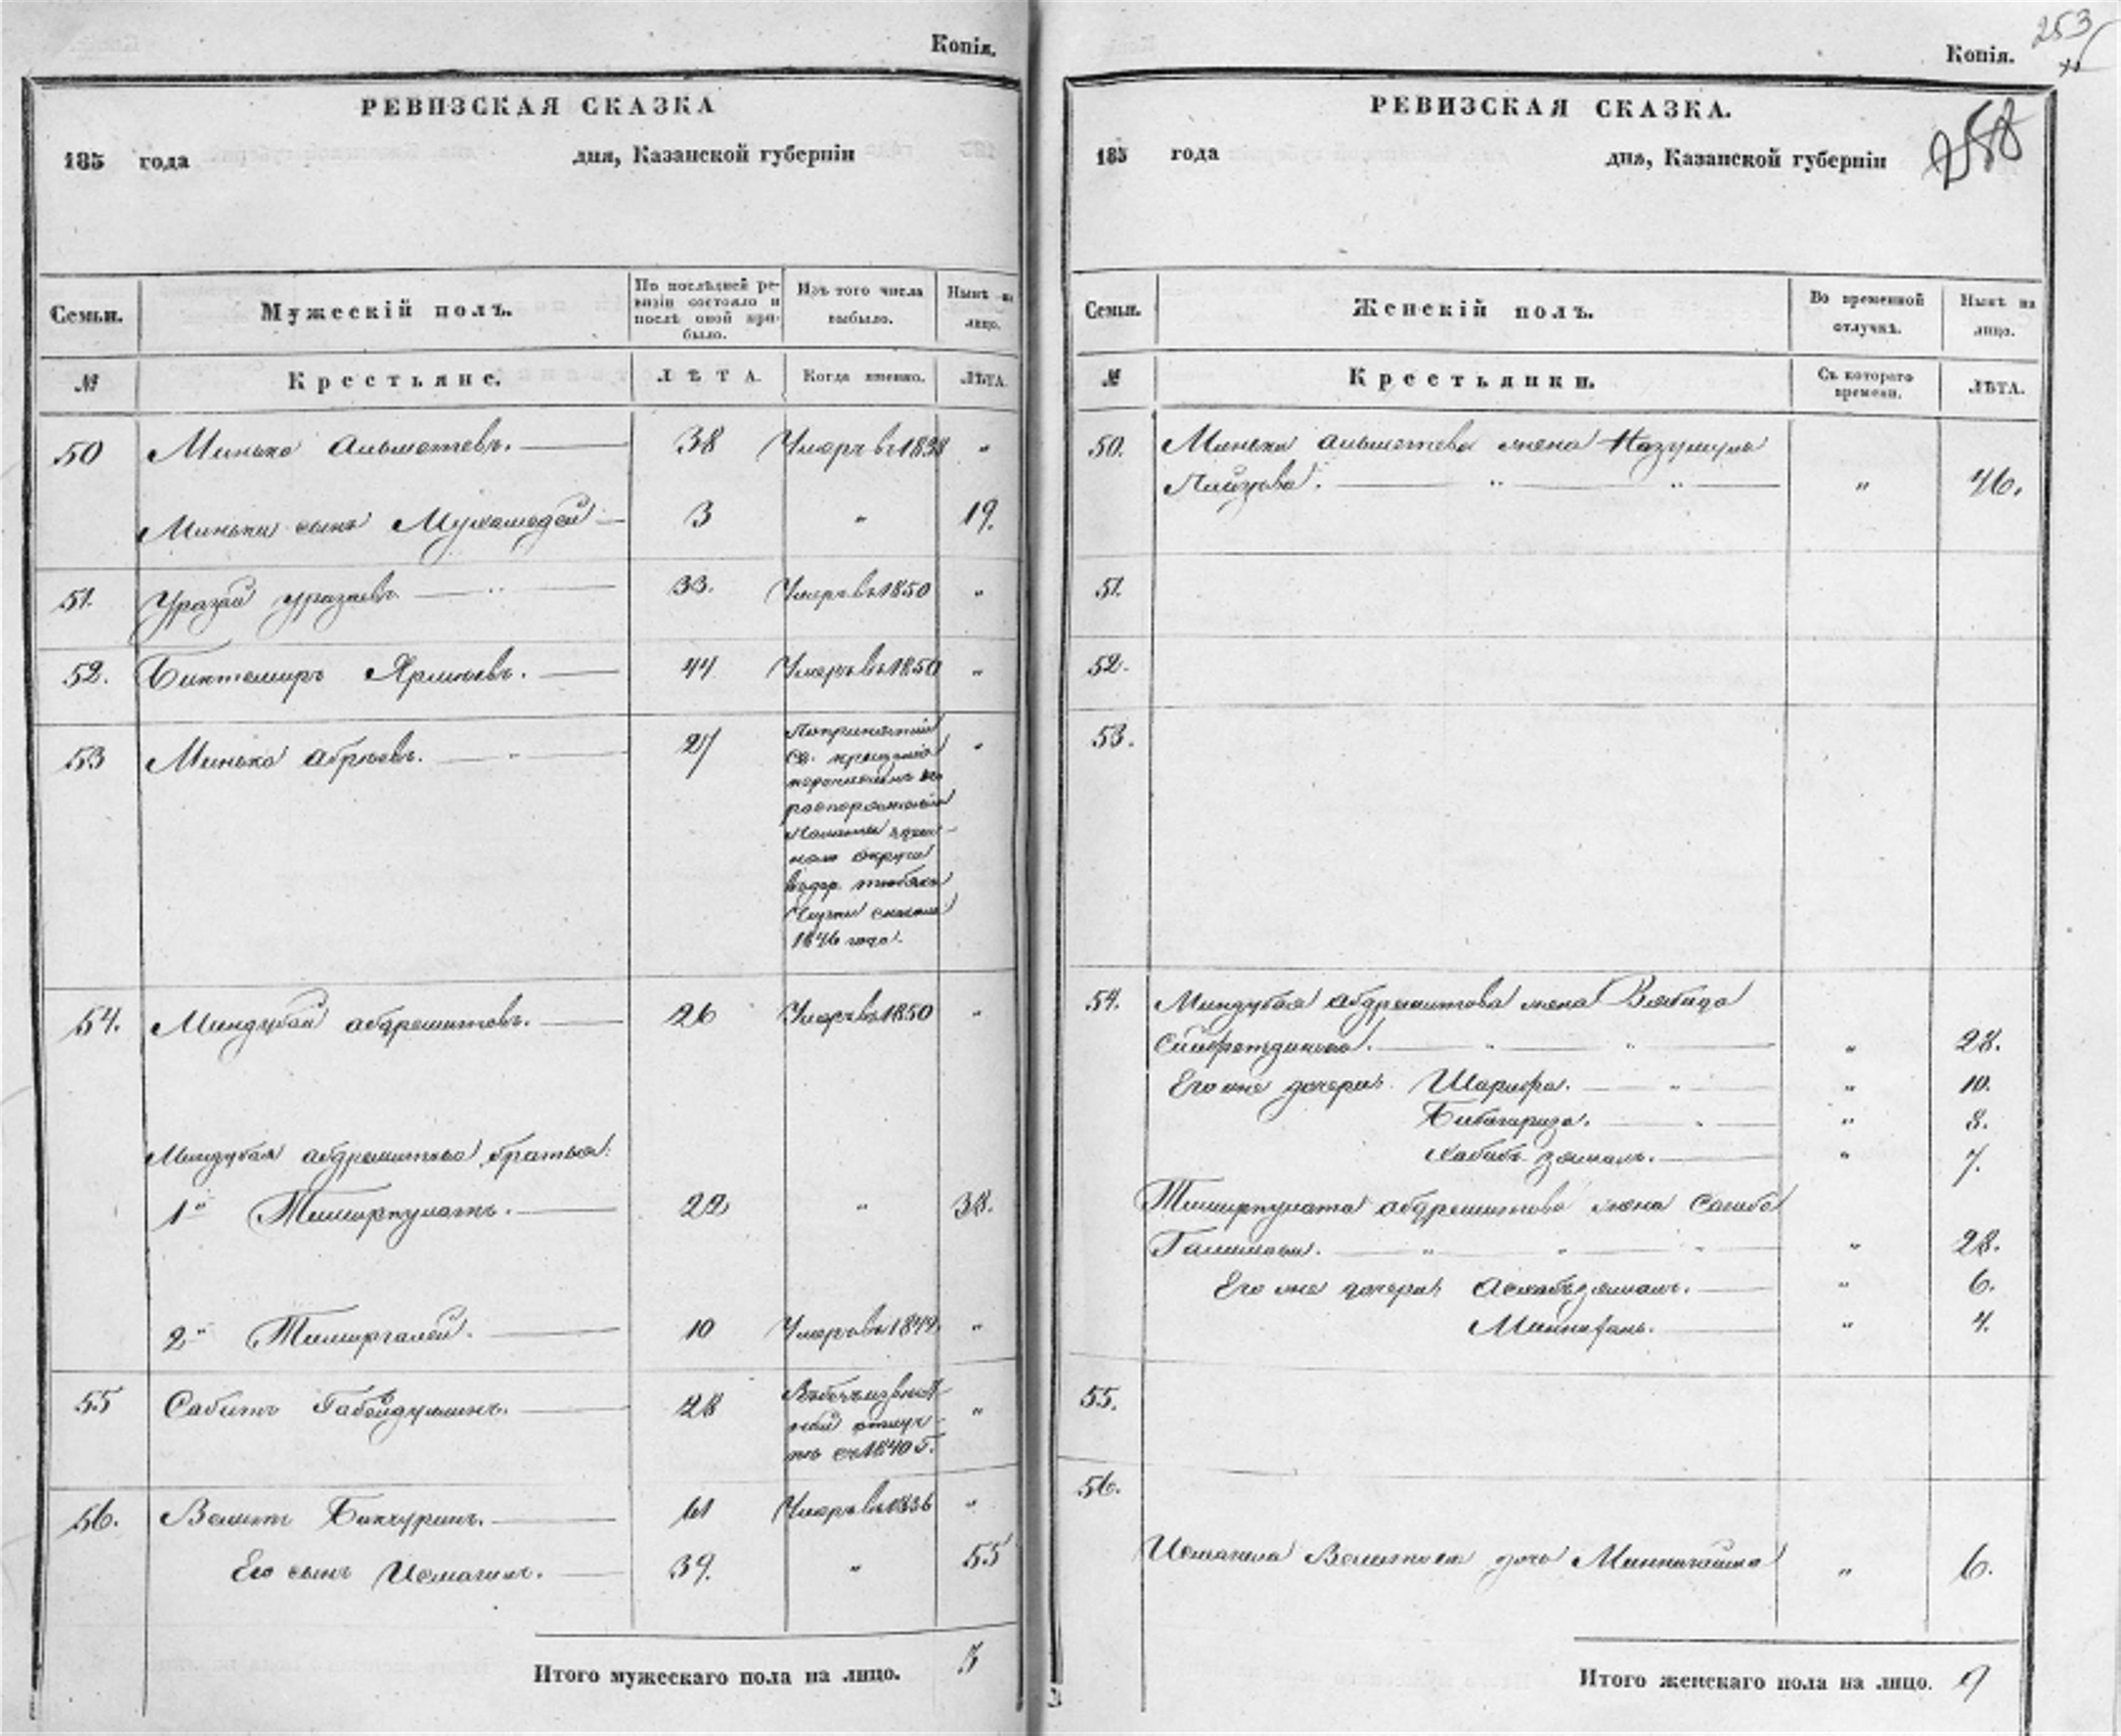 Копія.
РЕВИЗСКАЯ СКАЗКА
185 года дня, Казанской губерніи
Семьи. Мужескій полъ. По послѣдней ревизіи состояло и послѣ оной прибыло. Изъ того числа выбыло. Нынѣ на лицо.
№ Крестьяне. ЛѢТА. Когда именно. ЛѢТА.
50 Минька 38 Умеръ въ 1838 „
Миньки сынъ Мухамедей 3 „ 19.
51. Уразай Уразаевъ 33. Умеръ въ 1850 „
52. Биктемиръ 44 Умеръ въ 1850 „
53 Минька Абрѣевъ. 27 По принятіи
Св. крещенія
перечисленъ по
распоряженію
Палаты
округа
въ дер.
1846 года.
54. Миндубай Абдрешитовъ. 26 Умеръ въ 1850 „
Миндубая Абдрешитова братья:
1й Тимирпулатъ. 22 „ 38.
2й Тимиргалей. 10 Умеръ въ 1849. „
55 Сабитъ Габейдуллинъ. 28 Въ безъизвѣст-
ной отлуч-
кѣ съ 1840 г. „
56. Велитъ Бикчуринъ. 61 Умеръ въ 1836 „
Его сынъ Исмагилъ. 39. „ 55
Итого мужескаго пола на лицо. 3
Копія.
253
258
РЕВИЗСКАЯ СКАЗКА.
185 года дня, Казанской губерніи
Семьи. Женскій полъ. Во временной отлучкѣ. Нынѣ на лицо.
№ Крестьянки. Съ котораго времени. ЛѢТА.
50. Миньки жена
„ 46.
51.
52.
53.
54. Миндубая Абдрешитова жена Вябида
Сайфетдинова. „ 28.
Его же дочери: Шарифа. „ 10.
„ 8.
Хабибъ-зямалъ. „ 7.
Тимирпулата Абдрешитова жена Сагиба
Галимова. „ 28.
Его же дочери: „ 6.
„ 4.
55.
56.
Исмагила Велитова дочь „ 6.
Итого женскаго пола на лицо. 9